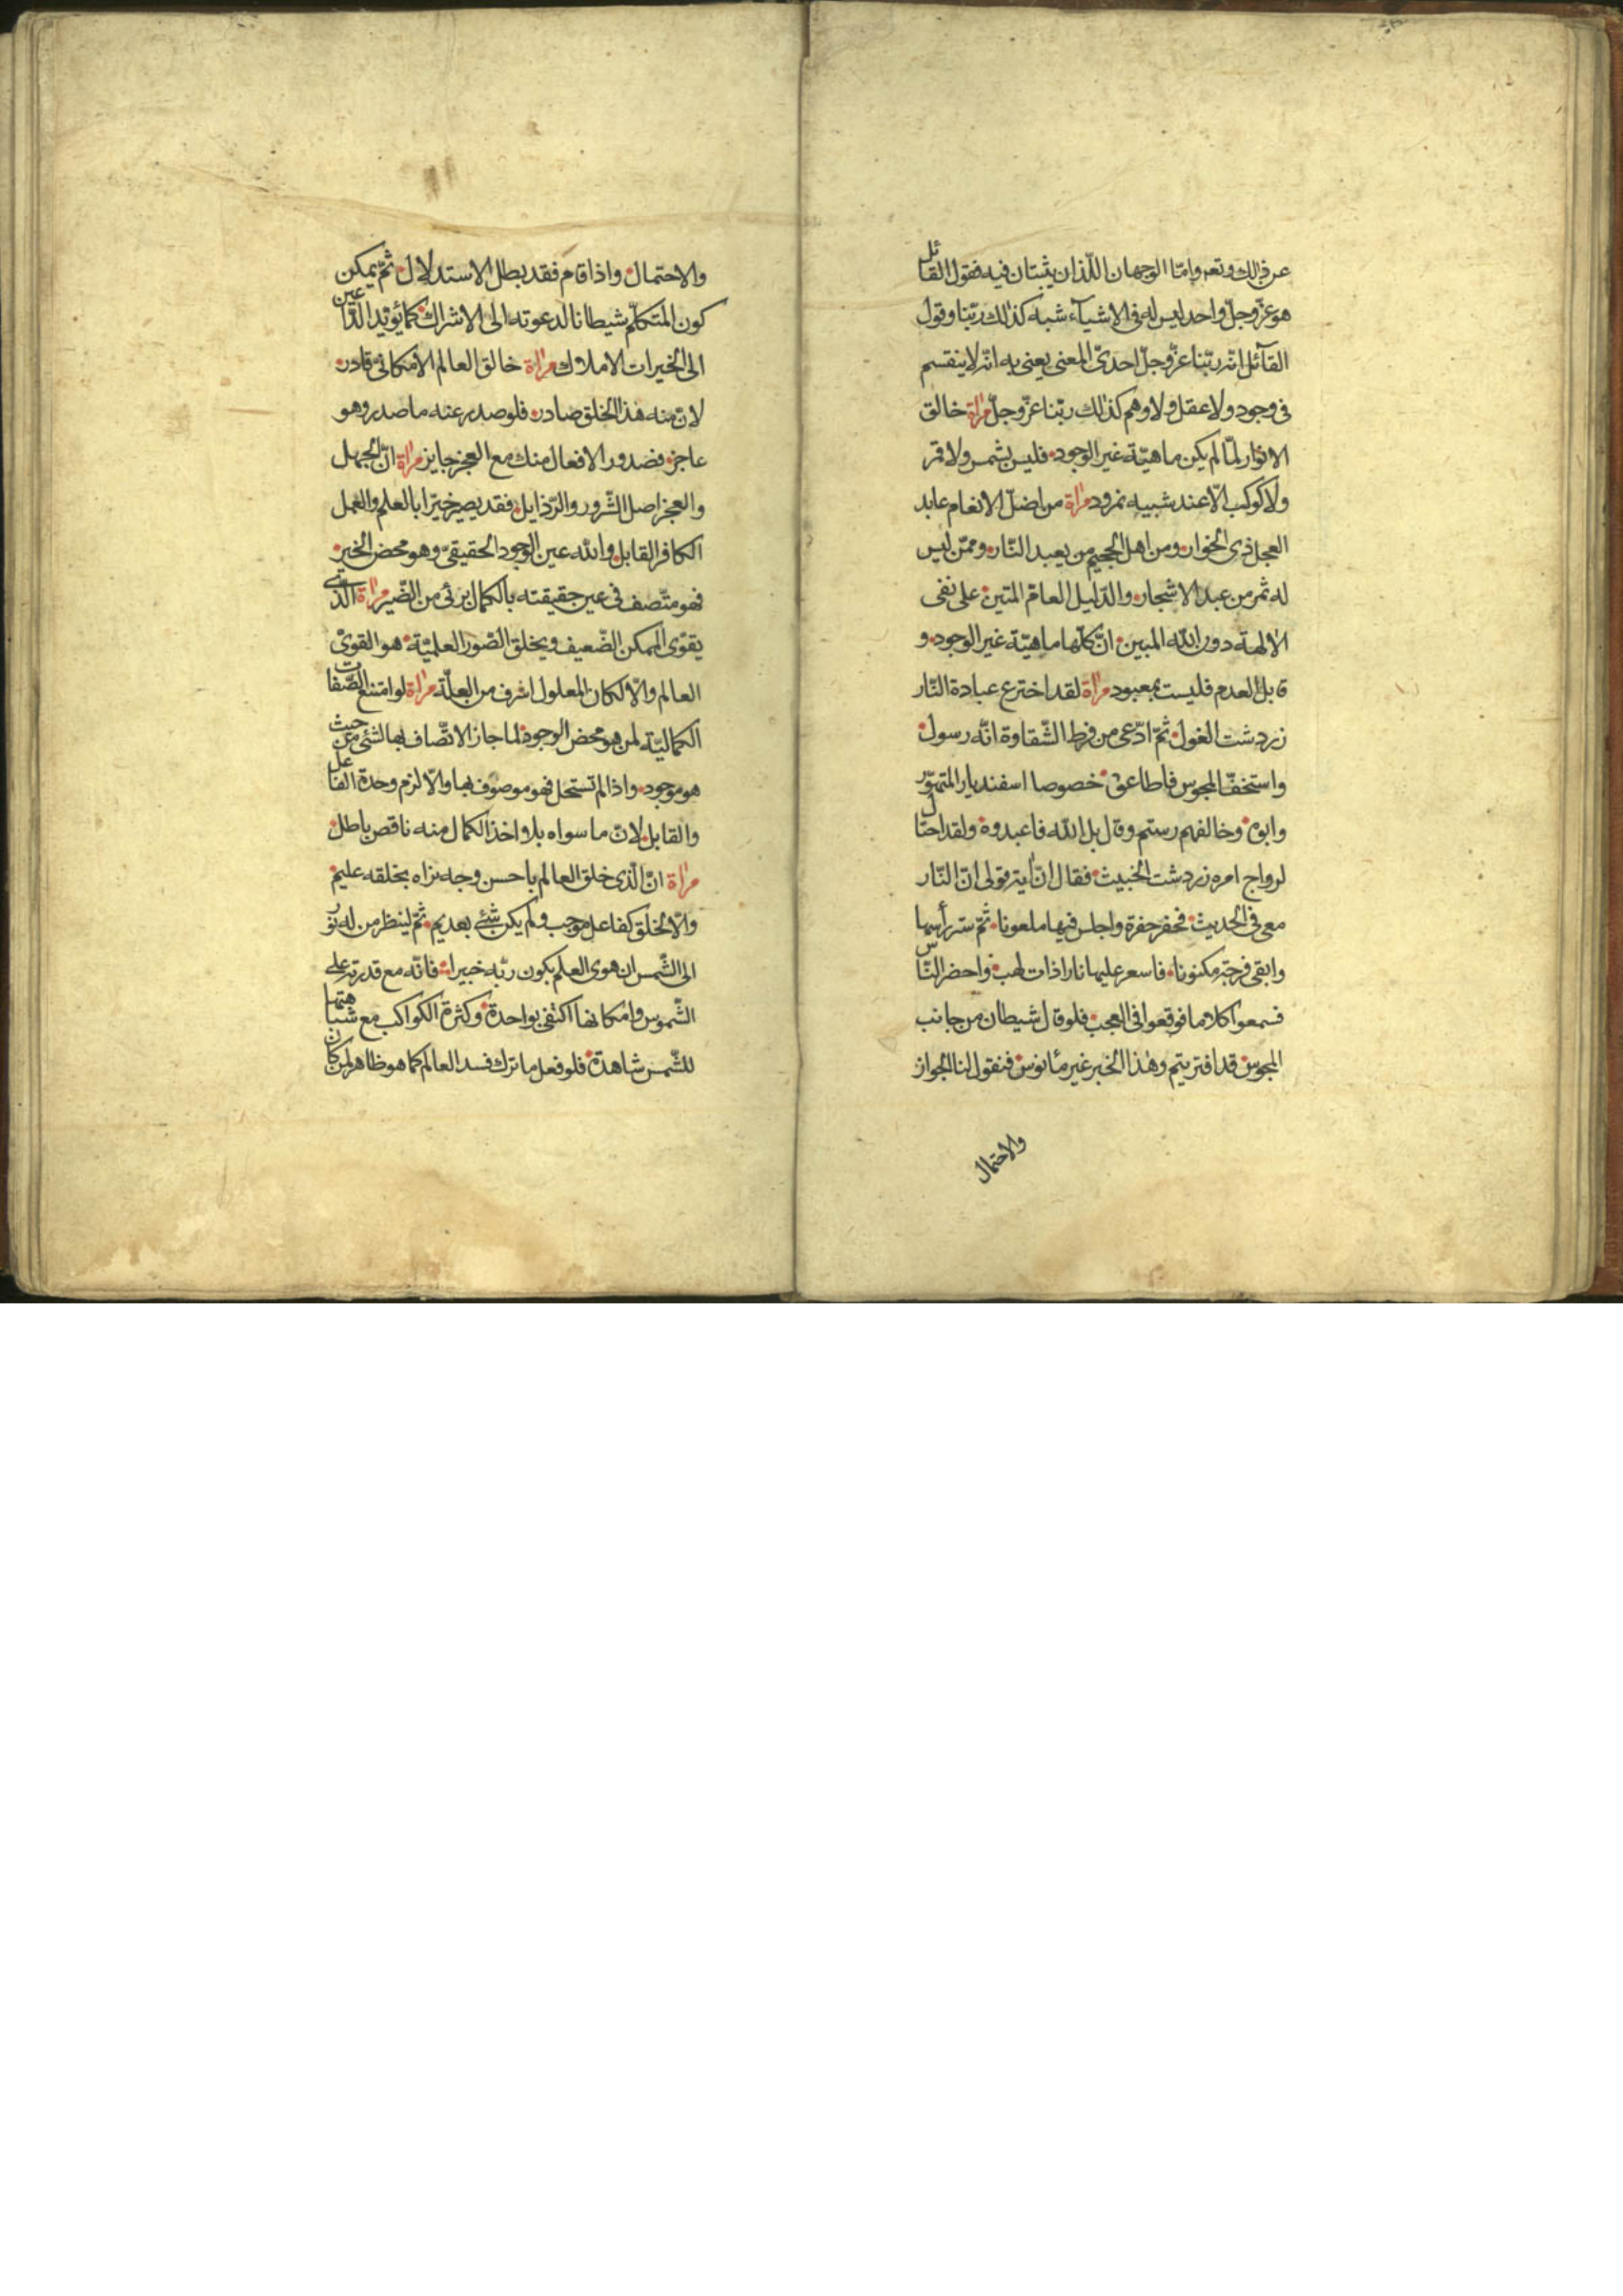 عن ذلك وتعر واما الوجهان اللّذان يثبتان فيه فقول القائل
هو عزّ وجلّ واحد ليس له فى الاشياء شبه كذلك ربّنا وقول
القآئل انّه ربّنا عزّ وجلّ احدىّ المعنى يعنى به انّه لا ينقسم
فى وجود ولا عقل ولا وهم كذلك ربّنا عزّ وجلّ مرآة خالق
الانوار لمّا لم يكن ماهيّة غير الوجود فليس بشمس ولا قمر
ولا كوكب الّا عند شبيه نمرود مرآة من اضلّ الانعام عابد
العجل ذى الخوار ومن اهل الجحيم من يعبد النّار وممّن ليس
له ثمر من عبد الاشجار والدّليل العامّ المتين على نفى
الالهة دون الله المبين انّ كلّها ماهيّة غير الوجود و
قابل العدم فليست بمعبود مرآة لقد اخترع عبادة النّار
زردشت الغول ثمّ ادّعى من فرط الشّقاوة انّه رسول
واستخفّ المجوس فاطاعوه خصوصا اسفنديار المتهوّر
وابوه وخالفهم رستم وقال بل الله فاعبدوه ولقد احتال
لرواج امره زردشت الخبيث فقال انّ اية قولى انّ النّار
معى فى الحديث فحفر حفرة واجلس فيها ملعونا ثمّ ستر رأسها
وابقى فرجة مكنونا فاسعر عليها نارا ذات لهب واحضر النّاس
فسمعوا كلاما فوقعوا فى العجب فلو قال شيطان من جانب
المجوس قد افتريتم وهذا الخبر غير مأنوس فنقول لنا الجواز
والاحتمال
والاحتمال واذا قام فقد بطل الاستدلال ثمّ يمكن
كون المتكلّم شيطانا لدعوته الى الاشراك كما يؤيّد الدّاعين
الى الخيرات الاملاك مرآة خالق العالم الامكانىّ قادر
لانّ منه هذا الخلق صادر فلو صدر عنه ما صدر وهو
عاجز فصدور الافعال منك مع العجز جايز مرآة انّ الجهل
والعجز اصل الشّرور والرّذايل فقد يصير خيّرا بالعلم والعمل
الكافر القابل والله عين الوجود الحقيقىّ وهو محض الخير
فهو متّصف فى عين حقيقته بالكمال برئى من الضّير مرآة الّذى
يقوّى الممكن الضّعيف ويخلق الصّور العلميّة هو القوىّ
العالم والّا لكان المعلول اشرف من العلّة مرآة لو امتنع الصّفات
الكماليّة لمن هو محض الوجود لما جاز الاتّصاف بها لشئ من حيث
هو موجود واذا لم تستحل فهو موصوف بها والّا لزم وحدة الفاعل
والقابل لانّ ما سواه بلا واخذ الكمال منه ناقص باطل
مرآة انّ الّذى خلق العالم باحسن وجه نراه بخلقه عليم
والّا لخلق كفاعل موجب ولم يكن شئ بعديم ثمّ لينظر من له نور
الى الشّمس ان هوى العلم بكون ربّه خبيرا فانّه مع قدرته على
الشّموس وامكانها اكتفى بواحدة وكثرة الكواكب مع شباهتها
للشّمس شاهدة فلو فعل ما ترك فسد العالم كما هو ظاهر لمن كان